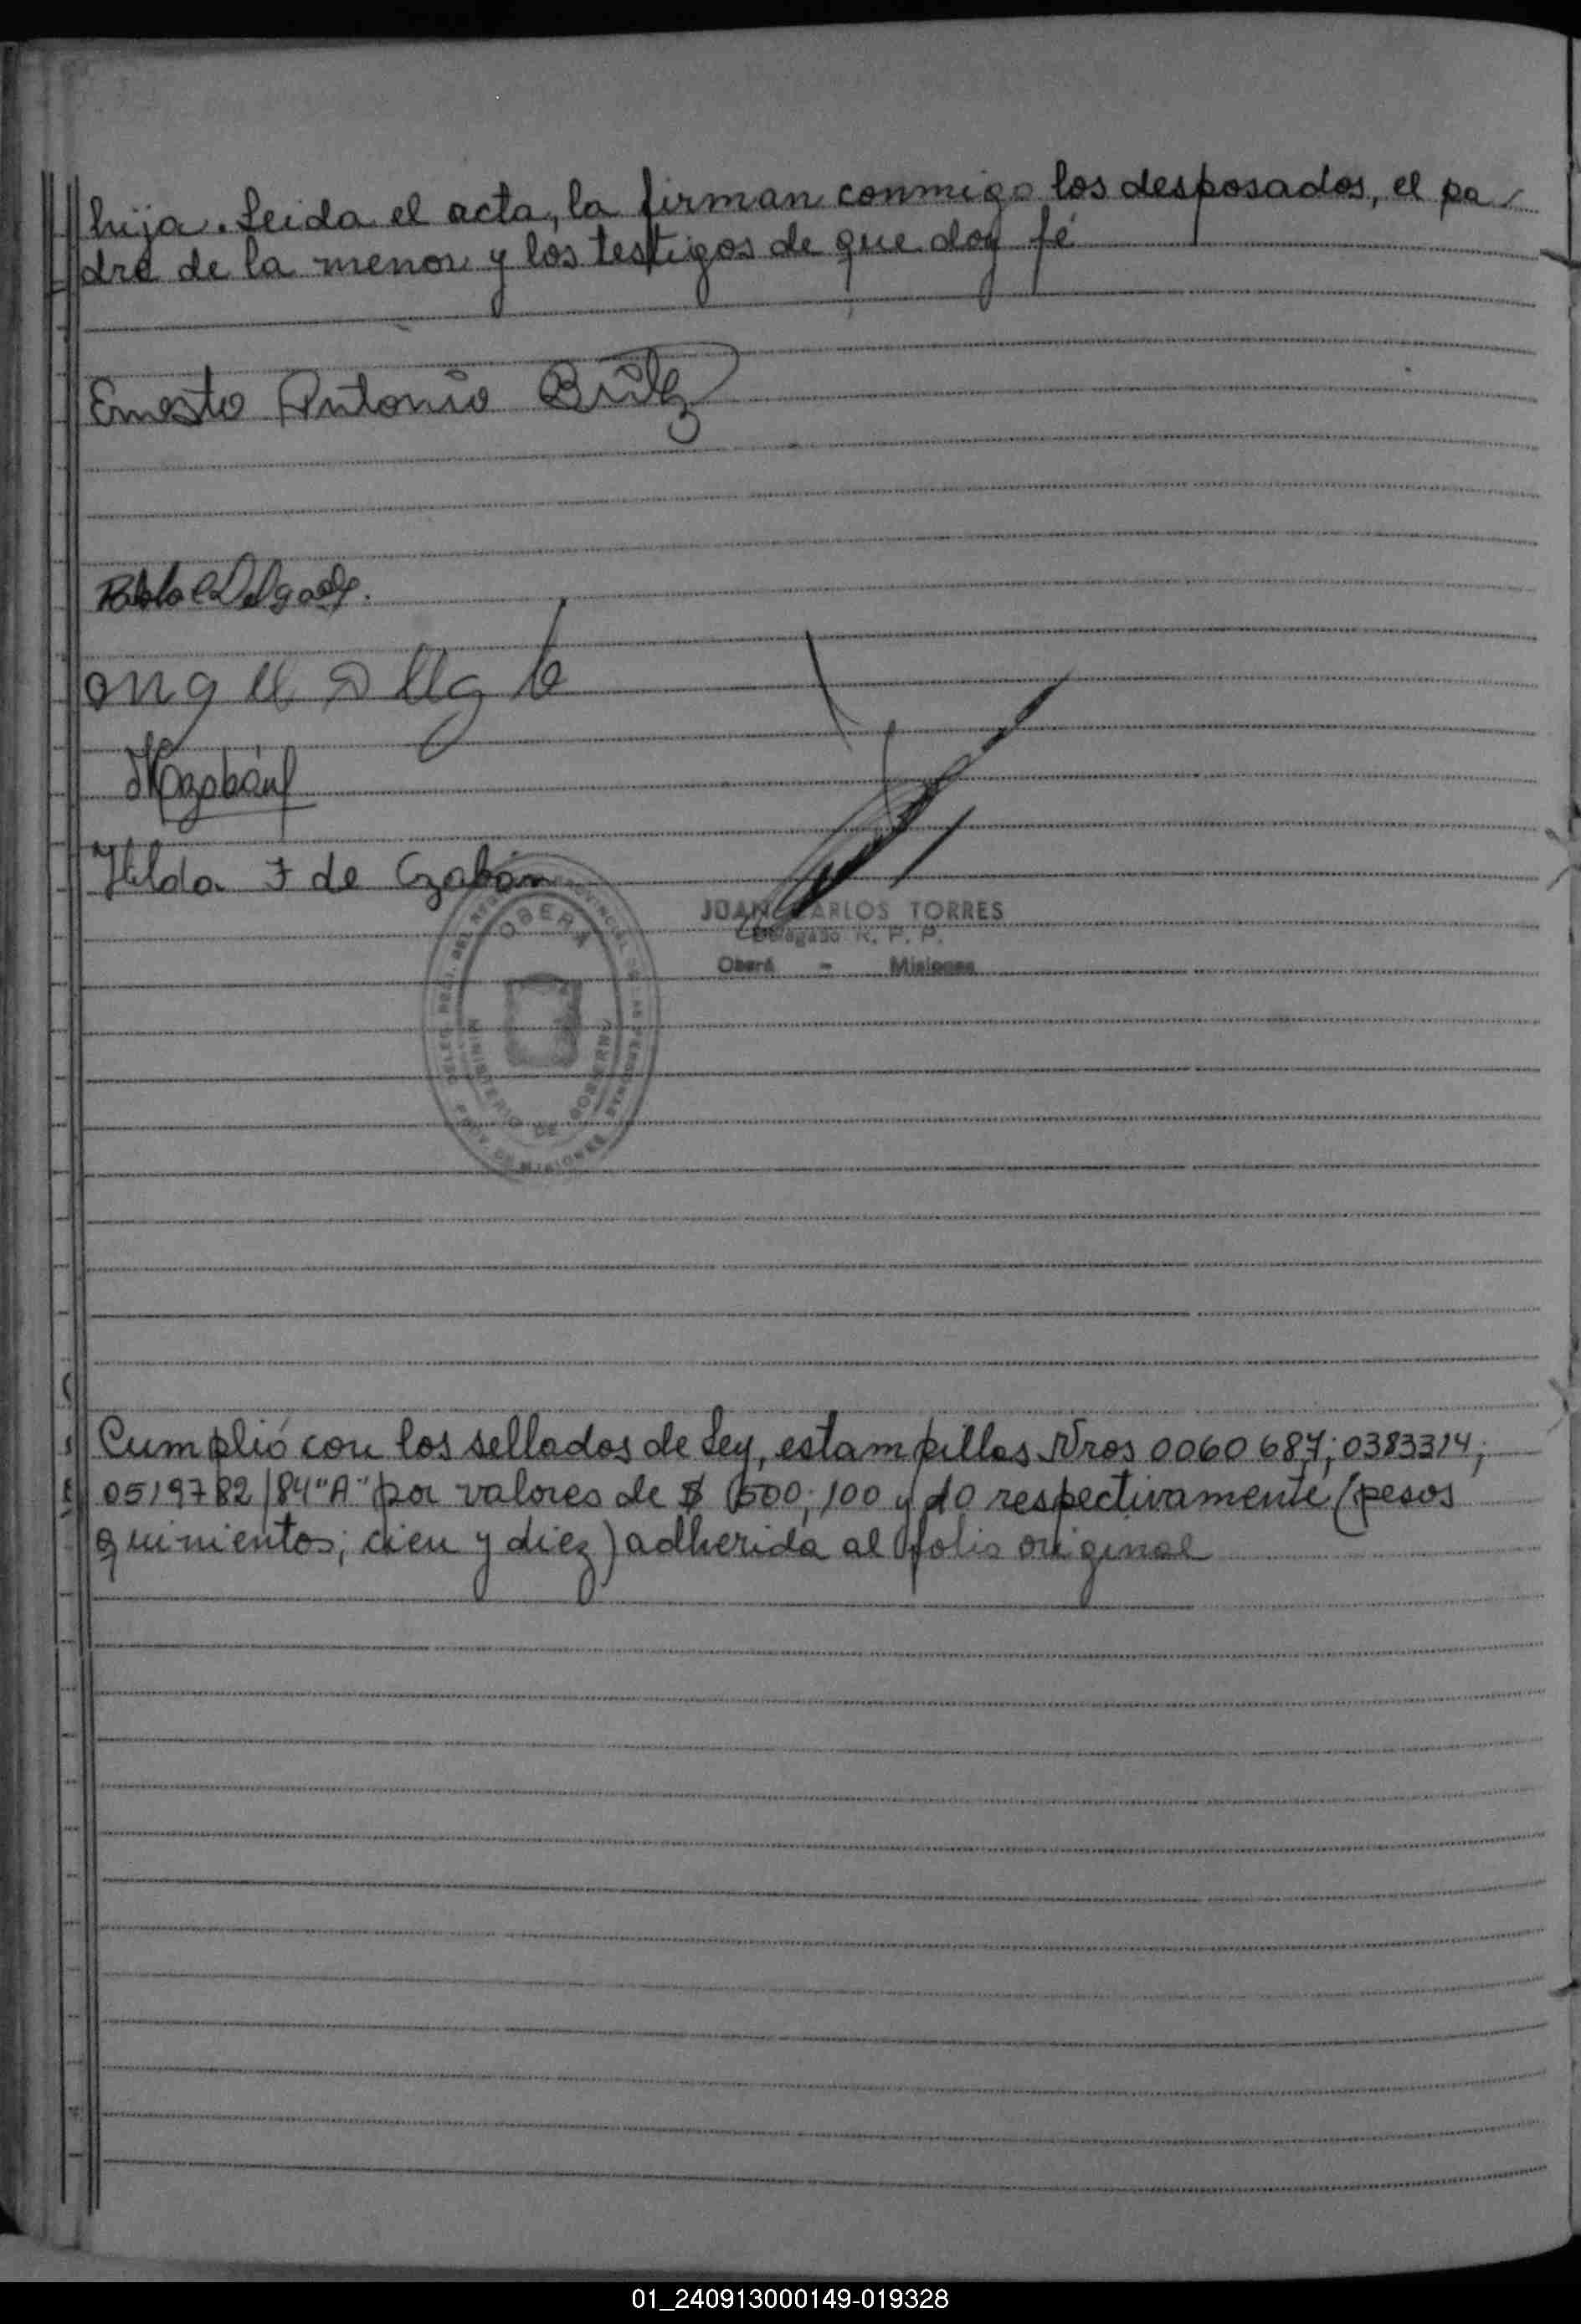 hija. Leida el acta, la firman conmigo los desposados, el pa/
dre de la menor y los testigos de que doy fé
Ernesto Antonio Britz
Hilda F de Czabán
OBERA
MINISTERIO DE GOBIERNO
PROV. DE MISIONES
JUAN CARLOS TORRES
Delegado R. P. P.
Oberá - Misiones
Cumplió con los sellados de Ley, estampillas Nros 0060687; 0383314;
0519782/84 "A" por valores de $ 500; 100 y 10 respectivamente (pesos
quinientos; cien y diez) adherida al folio original
01_240913000149-019328